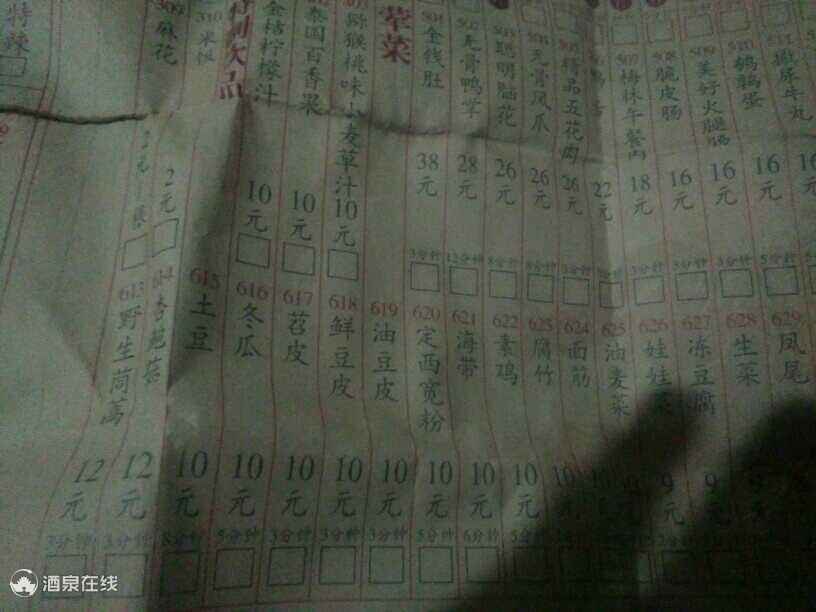 特辣
麻花
2元
310
米饭
2元
饮品
金桔柠檬汁
10元
泰国百香果
10元
猕猴桃味小麦草汁
10元
荤菜
501
金钱肚
38元
3分钟
502
无骨鸭掌
28元
12分钟
503
聪明脑花
26元
8分钟
无骨凤爪
26元
精品五花肉
26元
22元
507
梅林午餐肉
18元
508
脆皮肠
16元
5分钟
509
美好火腿肠
16元
3分钟
鹌鹑蛋
16元
撒尿牛丸
613
野生茼蒿
12元
3分钟
614
杏鲍菇
12元
3分钟
615
土豆
10元
8分钟
616
冬瓜
10元
5分钟
617
苕皮
10元
3分钟
618
鲜豆皮
10元
3分钟
619
油豆皮
10元
3分钟
620
定西宽粉
10元
5分钟
621
海带
10元
6分钟
622
素鸡
10元
5分钟
623
腐竹
10元
624
面筋
10元
625
油麦菜
626
娃娃菜
9元
627
冻豆腐
9
628
生菜
629
凤尾
酒泉在线